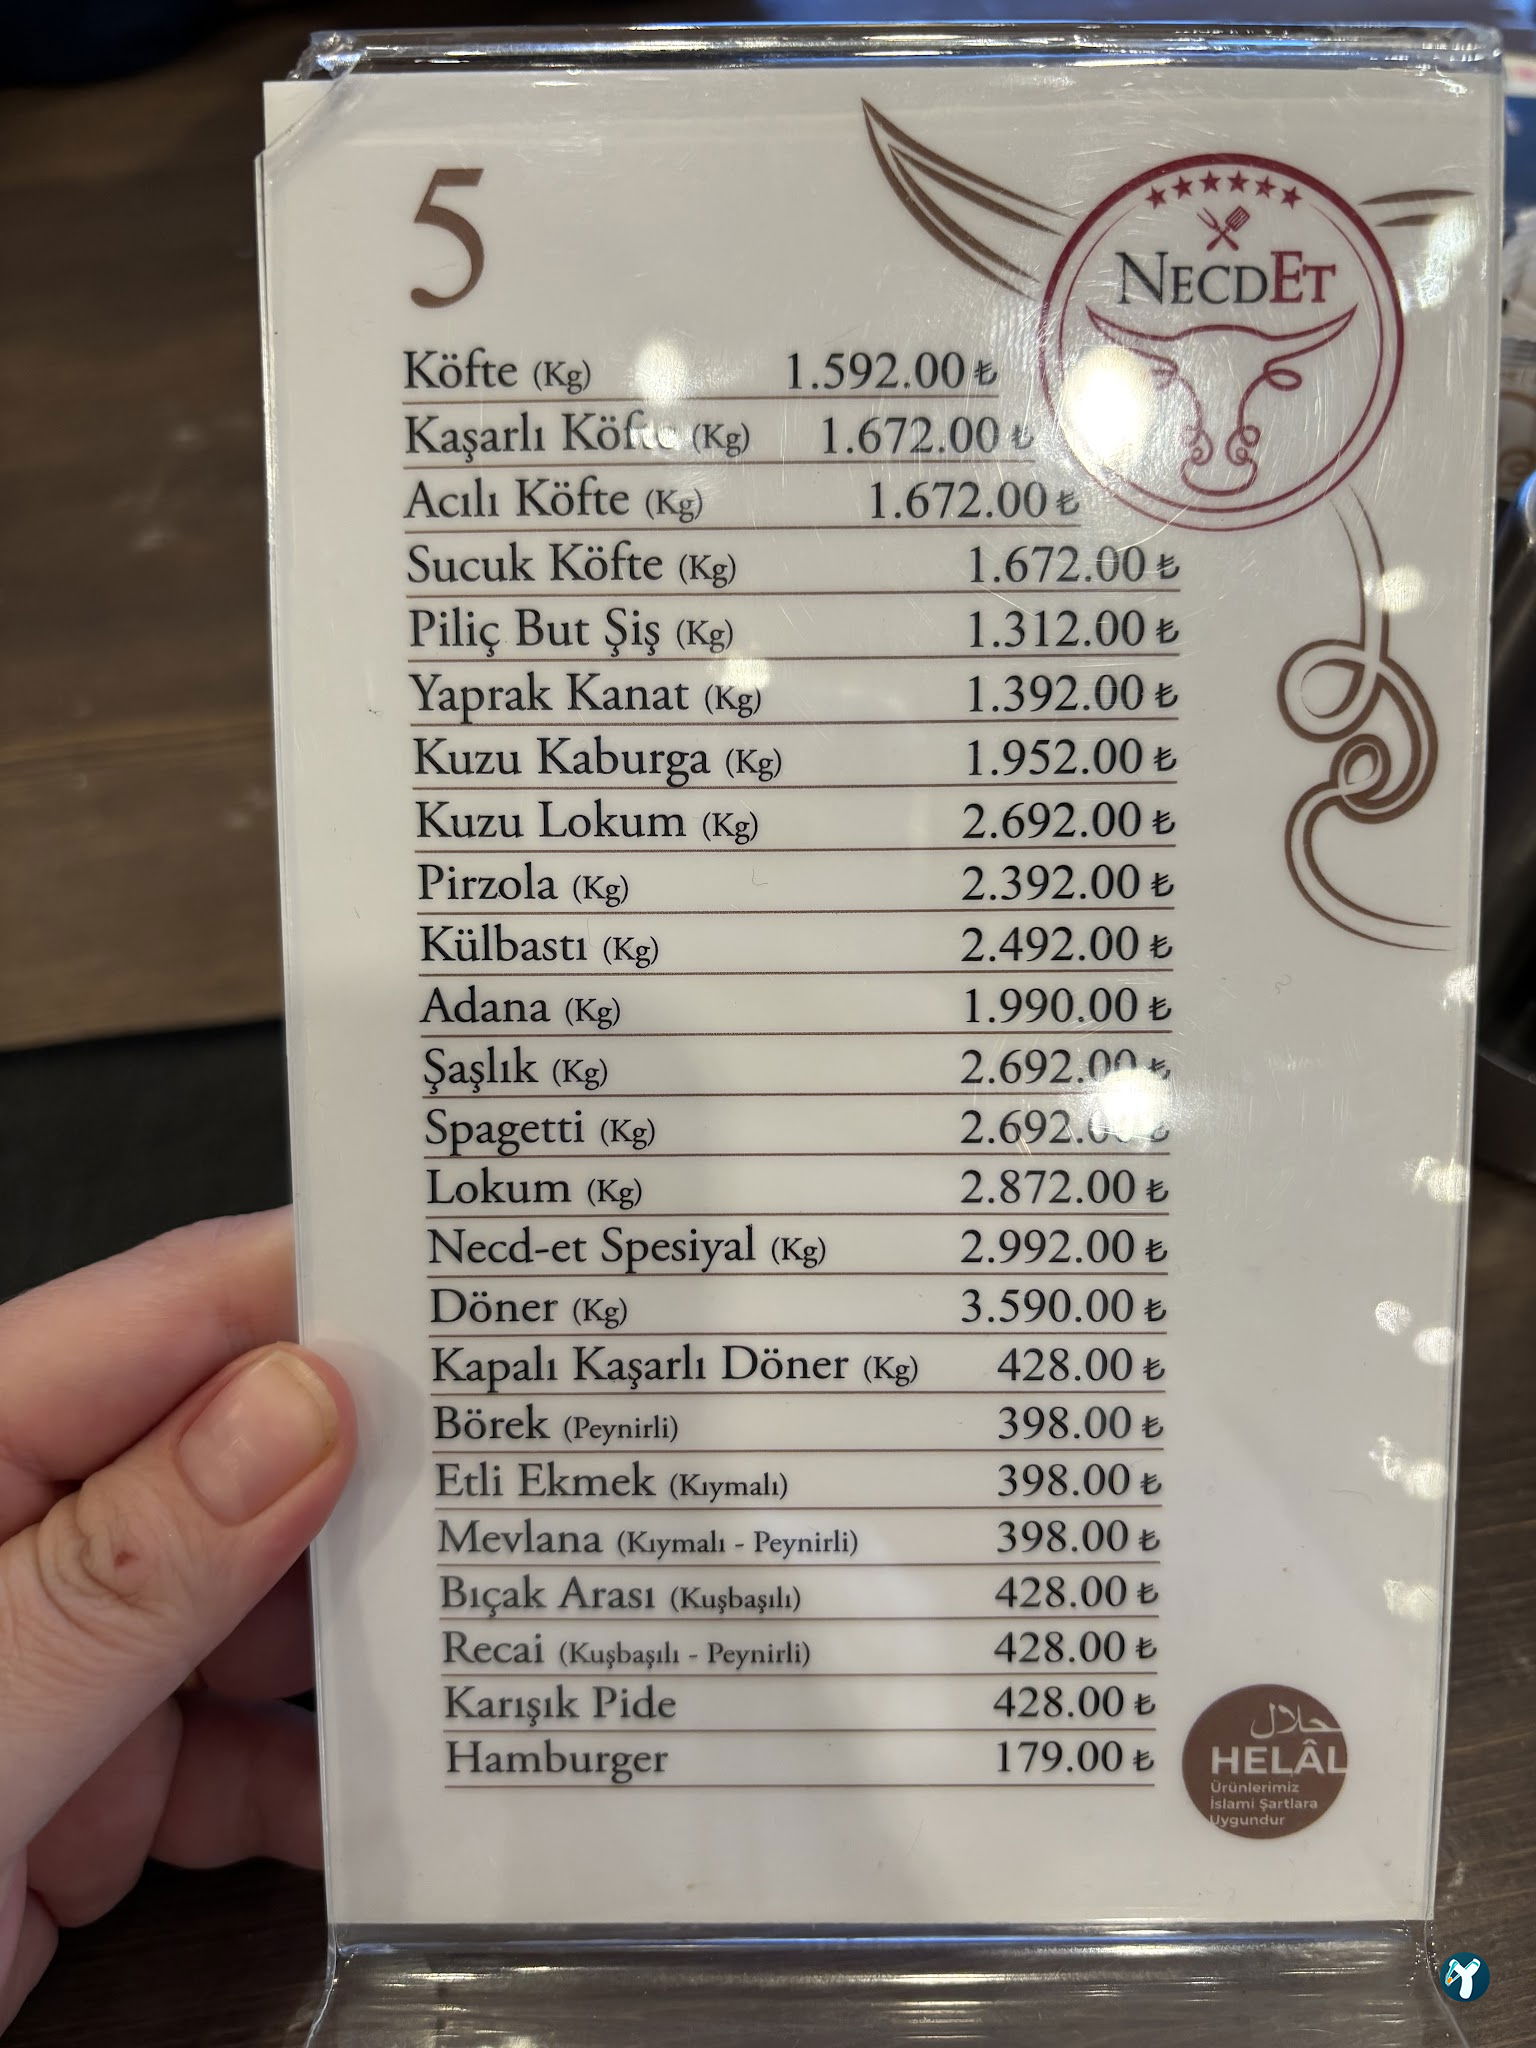 5
NECDET
Köfte (Kg) 1.592.00 ₺
Kaşarlı Köfte (Kg) 1.672.00 ₺
Acılı Köfte (Kg) 1.672.00 ₺
Sucuk Köfte (Kg) 1.672.00 ₺
Piliç But Şiş (Kg) 1.312.00 ₺
Yaprak Kanat (Kg) 1.392.00 ₺
Kuzu Kaburga (Kg) 1.952.00 ₺
Kuzu Lokum (Kg) 2.692.00 ₺
Pirzola (Kg) 2.392.00 ₺
Külbastı (Kg) 2.492.00 ₺
Adana (Kg) 1.990.00 ₺
Şaşlık (Kg) 2.692.00 ₺
Spagetti (Kg) 2.692.00 ₺
Lokum (Kg) 2.872.00 ₺
Necd-et Spesiyal (Kg) 2.992.00 ₺
Döner (Kg) 3.590.00 ₺
Kapalı Kaşarlı Döner (Kg) 428.00 ₺
Börek (Peynirli) 398.00 ₺
Etli Ekmek (Kıymalı) 398.00 ₺
Mevlana (Kıymalı - Peynirli) 398.00 ₺
Bıçak Arası (Kuşbaşılı) 428.00 ₺
Recai (Kuşbaşılı - Peynirli) 428.00 ₺
Karışık Pide 428.00 ₺
Hamburger 179.00 ₺
حلال
HELÂL
Ürünlerimiz
İslami Şartlara
Uygundur